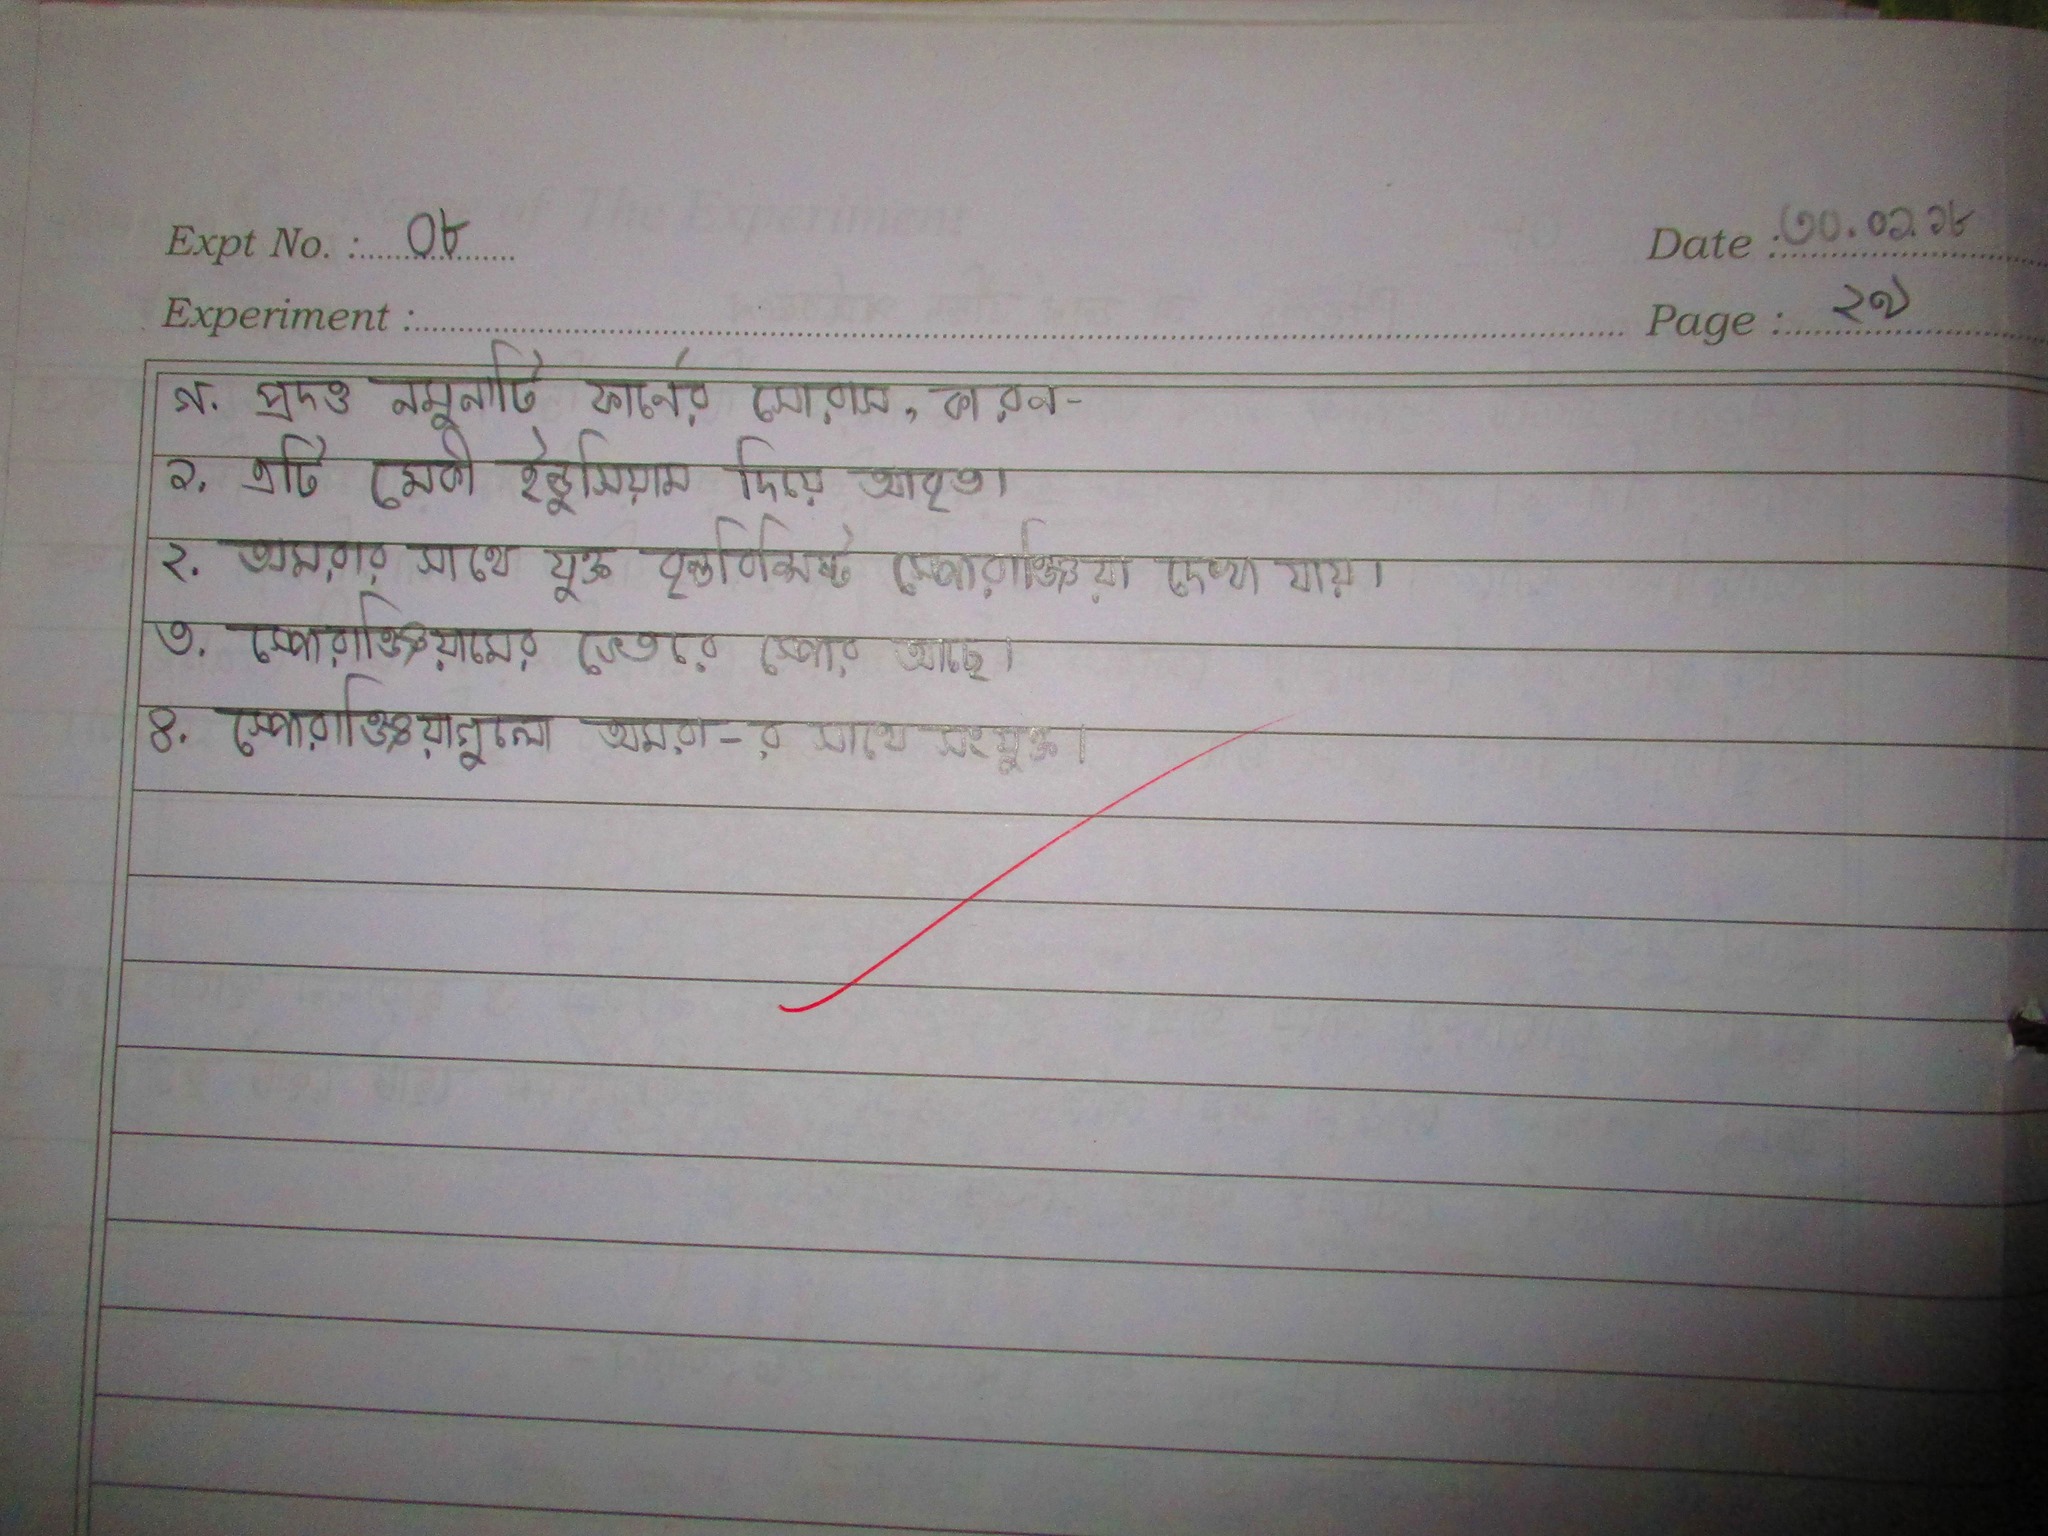 Expt No. : ০৮
Date : ৩০.০১.১৮
Experiment :
Page : ২৩
গ. প্রদত্ত নমুনাটি ফার্নের সোরাস, কারন-
১. এটি মেকী ইন্ডুসিয়াম দিয়ে আবৃত।
২. অমরার সাথে যুক্ত বৃন্তবিশিষ্ট স্পোরাঞ্জিয়া দেখা যায়।
৩. স্পোরাঞ্জিয়ামের ভেতরে স্পোর আছে।
৪. স্পোরাঞ্জিয়াগুলো অমরা-র সাথে সংযুক্ত।